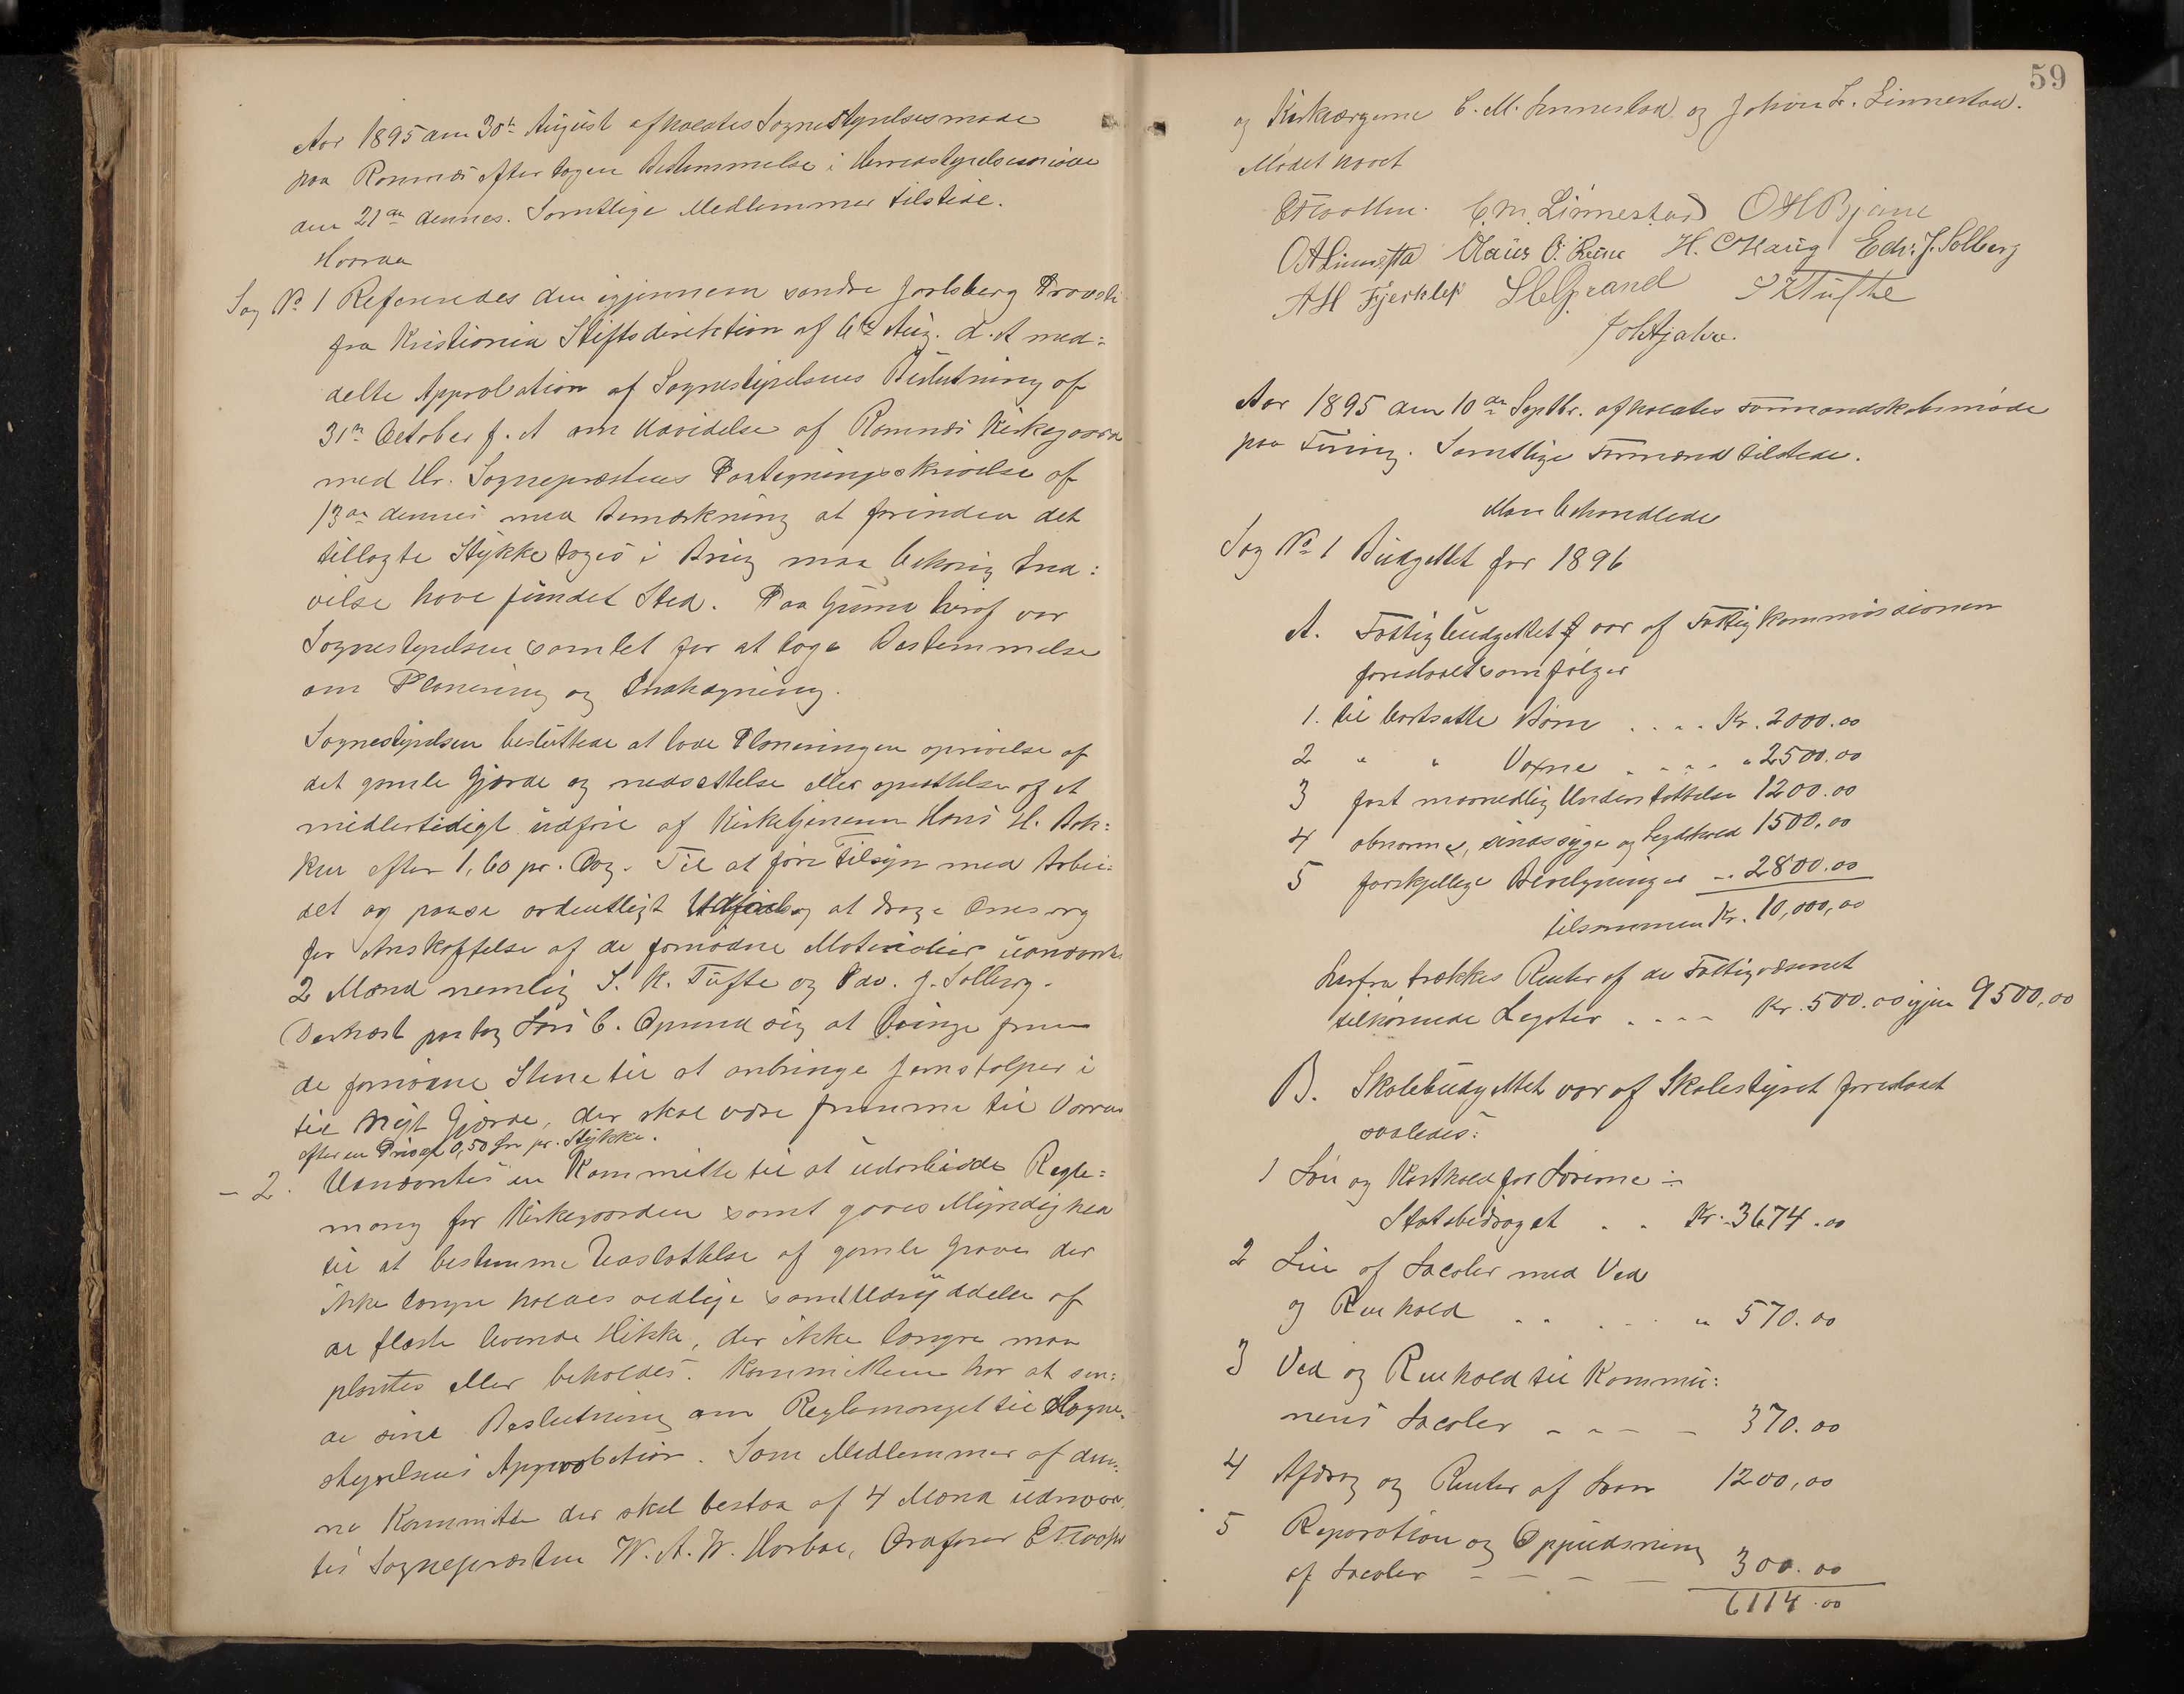 Aar 1895 den 30te August afholdtes Sognestyrelsesmøde
paa Ramnæs efter tagen Bestemmelse i Herredsstyrelsesmøde
den 21de dennes. Samtlige Medlemmer tilstede.
Hvorda
Sag No 1 Refereredes den igjennem søndre Jarlsberg Provsti
fra Kristiania Stiftsdirektion af 6te Aug. d. A med=
delte Approbation af Sognestyrelsens Beslutning af
31te October f. A om Udvidelse af Ramnæs Kirkegaard
med Hr. Sognepræstens Paategningsskrivelse af
13de dennes med Bemærkning at forinden det
tillagte Stykke toges i Brug maa behørig Ind=
vielse have fundet Sted. Paa Grund heraf var
Sognestyrelsen samlet for at tage Bestemmelse
om Planering og Indhegning.
Sognestyrelsen besluttede at lade Planeringen oprivelse af
det gamle Gjærde og nedsættelse eller opsættelse af et
midlertidigt udføre af Kirketjeneren Hans H. Bak=
ken efter 1,60 pr. Dag. Til at føre Tilsyn med Arbei=
det og paase ordentligt Udførelse og at drage Omsorg
for Anskaffelse af de fornødne Materialier udnævntes
2 Mænd nemlig S. K. Tufte og Edv. J. Solberg.
Dernæst paatog Lars C. Opsund sig at bringe frem
de fornødne Stene til at anbringe Jernstolper i
til Nyt Gjærde, der skal være fremme til Vaaren
efter en Pris af 0,50 Øre pr. Stykke.
- 2. Udnævntes en Kommitte til at udarbeide Regle=
mang for Kirkegaarden samt gaves Myndighed
til at bestemme Udslættelse af gamle Grave der
ikke længre holdes vedlige samt Udryddelse af
de fleste levende Hække, der ikke længre maa
plantes eller beholdes. Kommitteen har at sen=
de sine Beslutning om Reglemanget til Sogne=
styrelsens Approbation. Som Medlemmer af den=
ne Kommitte der skal bestaa af 4 Mænd udnævn=
tes Sognepræsten W. A. W. Horboe, Ordfører
59
og Kirkeværgerne C. M. Linnestad og Johan L. Linnestad.
Mødet hævet
C. M. Linnestad O H Bjune
O A Linnestad Claus O. Ruue H. C Haug Edv. J. Solberg
A H Fjerkleft S K Tufte
Aar 1895 den 10de Septbr. afholdtes Formandskabsmøde
paa Furing. Samtlige Formænd tilstede.
Man behandlede
Sag No 1 Budgettet for 1896
A. Fattigbudgettet var af Fattigkommissionen
foreslaaet som følger
1. til bortsatte Børn .... Kr. 2000.00
2 " " Voxne .... " 2500.00
3 fast maanedlig Understøttelse 1200.00
4 abnorme, sindssyge og Legdhold 1500.00
5 forskjellige Bevilgninger -. 2800.00
tilsammen Kr. 10,000,00
herfra trækkes Renter af de Fattigvæsenet
tilhørende Legater .... Kr. 500.00 igjen 9500,00
B. Skolebudgettet var af Skolestyret foreslaaet
saaledes:
1 Løn og Kosthold for Lærerne ÷
Statsbidraget . . Kr. 3674.00
2 Leie af Localer med Ved
og Renhold . . . . " 570.00
3 Ved og Renhold til Kommu=
nens Localer - - - - 370.00
4 Afdrag og Renter af Laan 1200,00
5 Reparation og Oppudsning
af Localer - - - - 300.00
6114.00